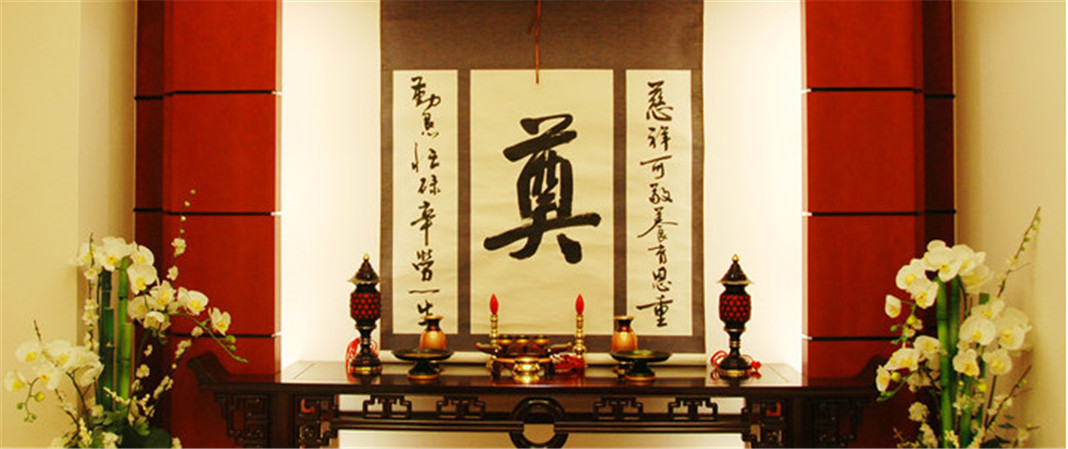 慈祥可敬養育恩重
奠
勤恳忙碌辛勞一生